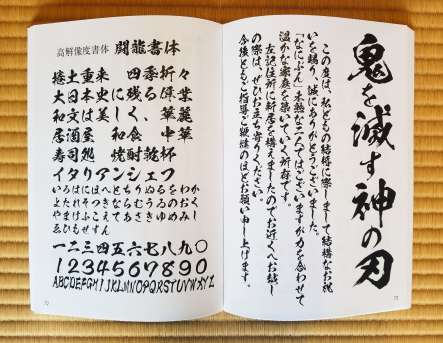 高解像度書体 闘龍書体
捲土重来 四季折々
大日本史に残る偉業
和文は美しく、華麗
居酒屋 和食 中華
寿司処 焼酎乾杯
イタリアンシェフ
いろはにほへとちりぬるをわか
よたれそつねならむうゐのおく
やまけふこえてあさきゆめみし
ゑひもせすん
一二三四五六七八九〇
1234567890
ABCDEFGHIJKLMNOPQRSTUVWXYZ
72
鬼を滅す神の刃
この度は、私どもの結婚に際しまして結構なお祝
いを賜り、誠にありがとうございました。
「なにぶん」未熟な二人ではございますが力を合わせて
温かな家庭を築いていく所存です。
左記住所に新居を構えましたのでお近くへお越し
の際は、ぜひお立ち寄りください。
今後ともご指導ご鞭撻のほどお願い申し上げます。
73